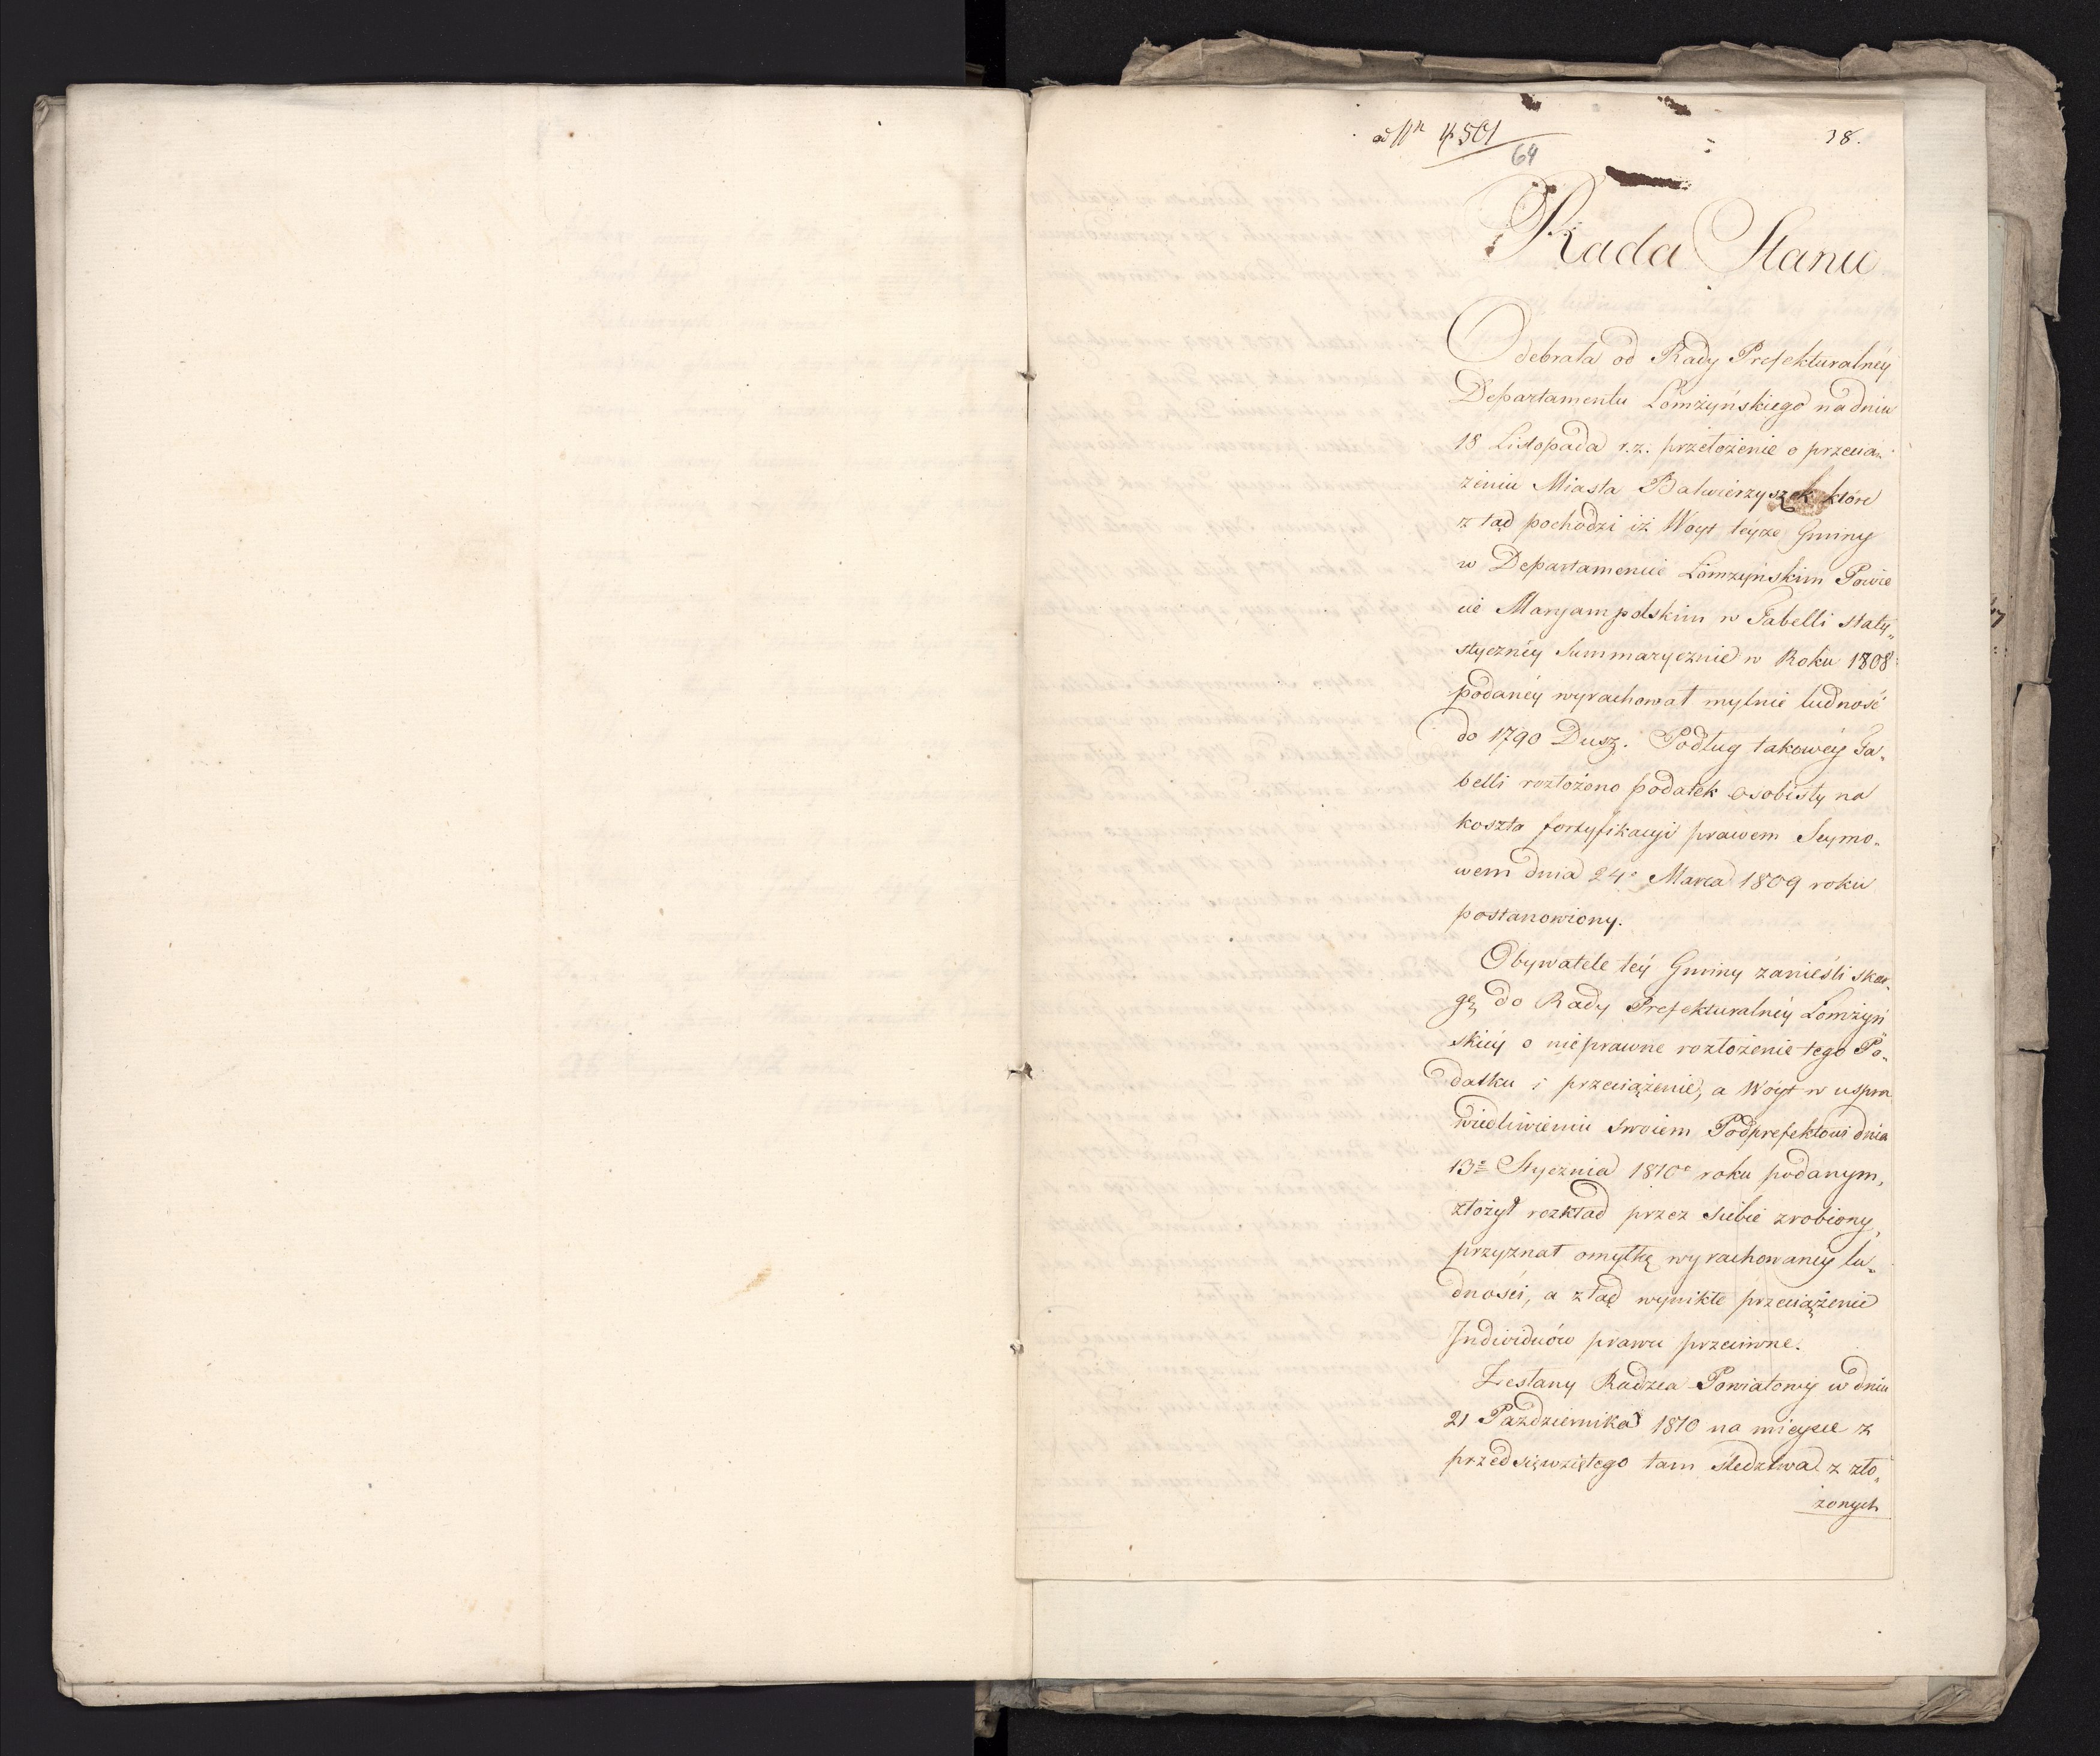 ad Nr 4501
64
38.
Rada Stanu
Odebrała od Rady Prefekturalnéy
Departamentu Łomżyńskiego na dniu
18 Listopada r.z. przełożenie o przecią„
żeniu Miasta Balwierzyszek które
z tąd pochodzi iż Woyt teyże Gminy
w Departamencie Łomżyńskim Powie
cie Maryampolskim w Tabelli staty„
stycznéy Summarycznie w Roku 1808
podanéy wyrachował mylnie ludność
do 1790 Dusz. Podług takowéy Ta„
belli rozłożono podatek osobisty na
koszta fortyfikacyi prawem Seymo„
wem dnia 24o Marca 1809 roku
postanowiony.
Obywatele téy Gminy zanieśli skar„
gę do Rady Prefekturalnéy Łomżyń
skiéy o nieprawne rozłożenie tego Po„
datku i przeciążenie, a Woyt w uspra
wiedliwieniu swoiem Podprefektowi dnia
13o Stycznia 1810o roku podanym,
złożył rozkład przez siebie zrobiony,
przyznał omyłkę wyrachowanéy lu„
dności, a ztąd wynikłe przeciążenie
Individuów prawu przeciwne.
Zesłany Radzca Powiatowy w dniu
21 Pazdziernika 1810 na mieysce z
przedsięwziętego tam śledztwa z zło„
żonych